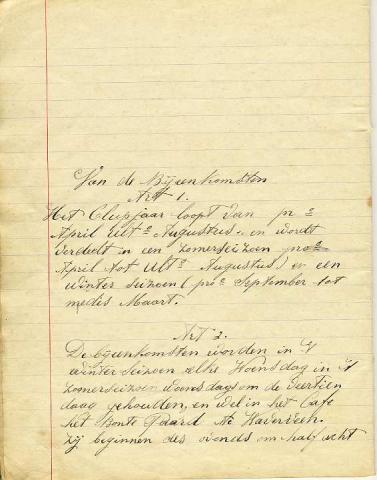 Van de Bijeenkombsten
Art 1.
Het Clupjaar loopt van pro
April Ult Augustus. en wordt
verdeelt in een zomerseizoen pro
April tot Ult Augustus) en een
winter seizoen (pro September tot
medis Maart.
Art 2.
De byeenkombsten worden in 't
winterseizoen elke Woensdag in 't
zomerseizoen woensdags om de veertien
daag gehoulden, en wel in het Cafe
het Bonte Paard te Haverveen.
zij beginnen des avonds om half acht